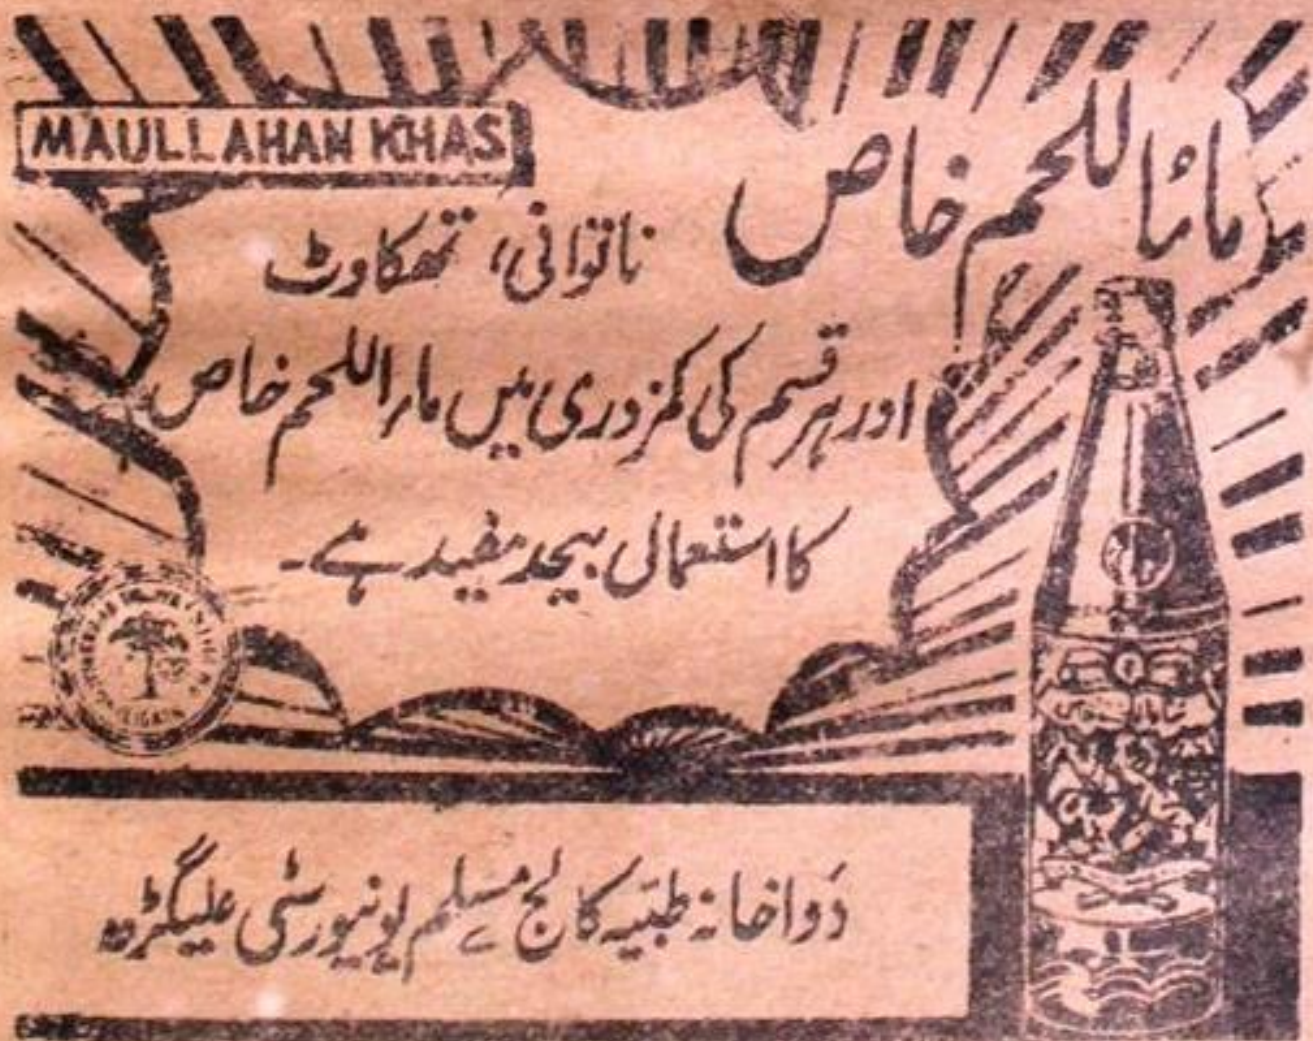 MAULLAHAN KHAS
مائاللحم خاص
ناتوانی، تھکاوٹ
اور ہر قسم کی کمزوری میں ماء اللحم خاص
کا استعمال بیحد مفید ہے۔
دَواخانہ طبّیہ کالج مسلم یونیورسٹی علیگڑھ